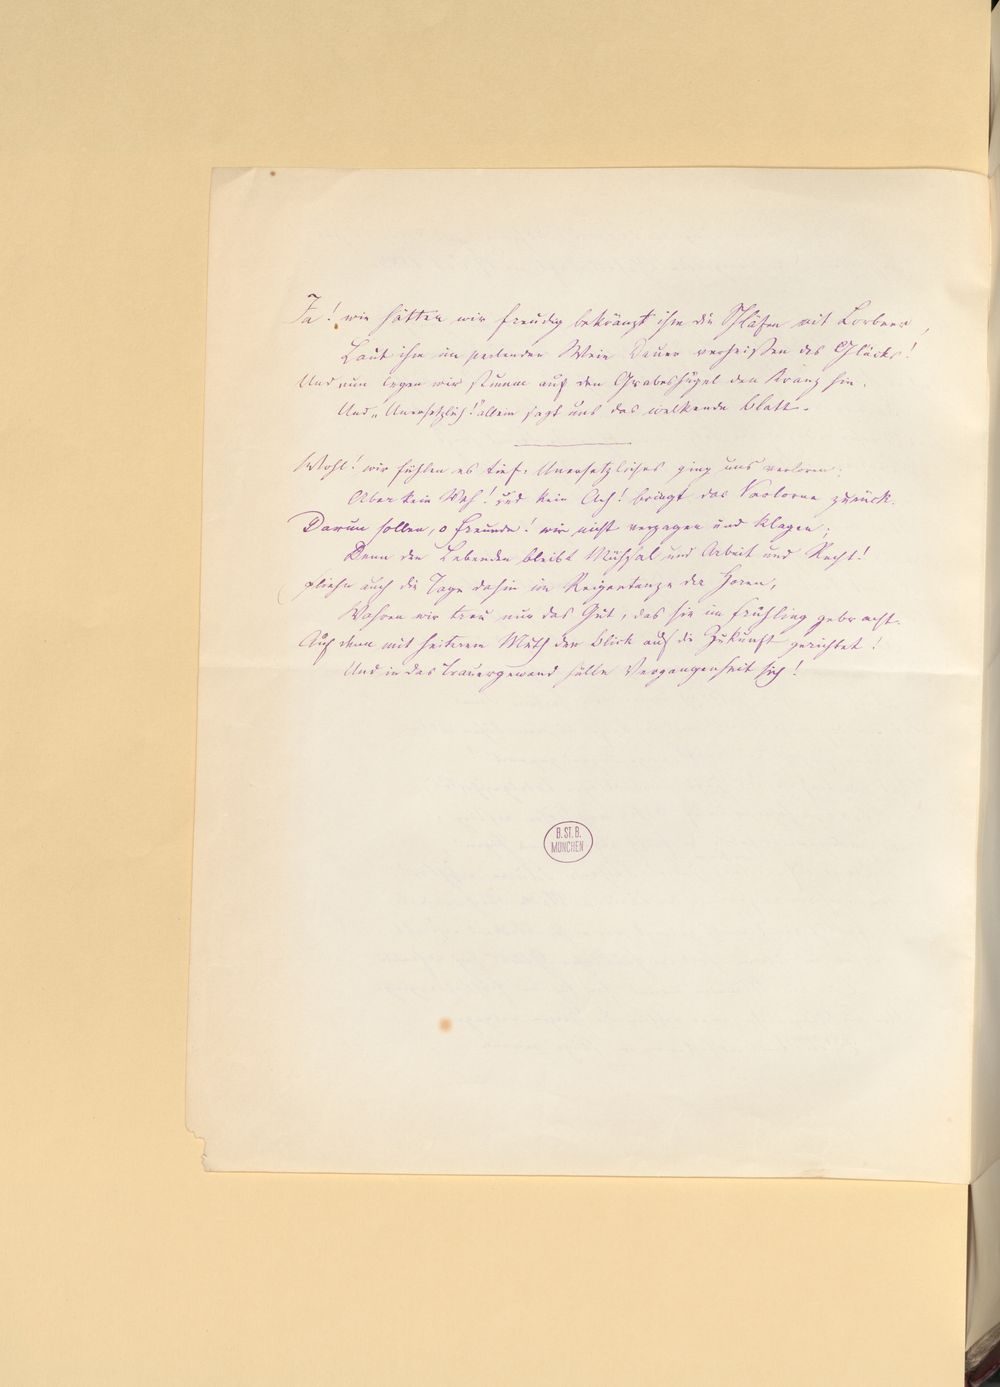 Ja! wie hätten wir freudig bekränzt ihm die Schläfen mit Lorbeer,
Laut ihm im perlenden Wein Dauer verheißen des Glücks!
Und nun legen wir stumm auf den Grabeshügel den Kranz hin.
Und „Unersetzlich!" allein sagt uns das welkende Blatt.
Wohl! wir fühlen es tief: Unersetzliches ging uns verloren:
Aber kein Weh! und kein Ach! bringt das Verlorne zurück.
Darum sollen, o Freunde! wir nicht verzagen und klagen;
Denn den Lebenden bleibt Mühsal und Arbeit und Recht!
Fliehn auch die Tage dahin im Reigentanze der Horen,
Wahren wir treu nur das Gut, das sie im Frühling gebracht.
Auf denn mit heiterem Muth den Blick auf die Zukunft gerichtet!
Und in das Trauergewand hülle Vergangenheit sich!
B. ST. B.
MÜNCHEN